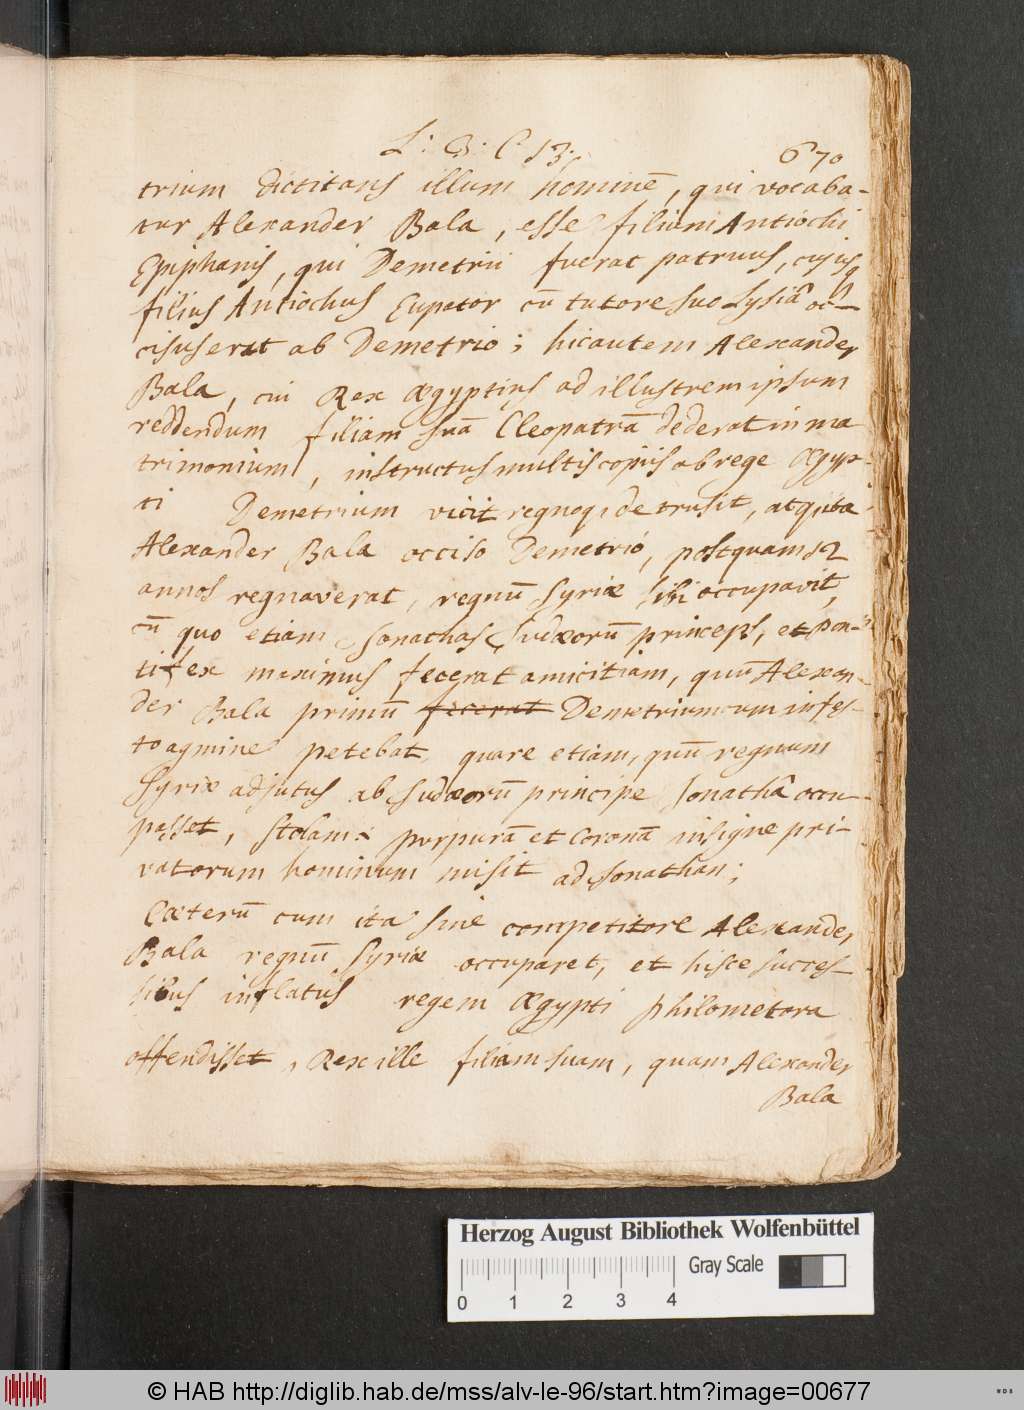 L: B: C 13. 670
trium dictitans illum hominē, qui vocaba-
tur Alexander Bala, esse filium Antiochi
Epiphanis, qui Demetrii fuerat patruus, cujusq
filius Antiochus Eupator cū tutore suo Lysiâ oc-
cisus erat ab Demetrio; hic autem Alexander
Bala, cui Rex Ægyptius ad illustrem ipsum
reddendum filiam suā Cleopatrā dederat in ma
trimonium, instructus multis copiis ab rege Ægyp-
ti Demetrium vicit regnoq; detrusit, atq; ita
Alexander Bala occiso Demetrio, postquam 12
annos regnaverat, regnū Syriæ sibi occupavit,
cū quo etiam Jonathas Judæorū princeps, et pon-
tifex maximus fecerat amicitiam, quū Alexan-
der Bala primū fecerat Demetrium cum infes-
to agmine petebat, quare etiam, quū regnum
Syriæ adjutus ab Judæorū principe Jonathâ occu-
passet, stolam purpurā et coronā insigne pri-
vatorum hominum misit ad Jonathan;
Cæterū cum ita sine competitore Alexander
Bala regnū Syriæ occuparet, et hisce succes-
sibus inflatus regem Ægypti Philometora
offendisset, Rex ille filiam suam, quam Alexander
Bala
Herzog August Bibliothek Wolfenbüttel
Gray Scale
0 1 2 3 4
© HAB http://diglib.hab.de/mss/alv-le-96/start.htm?image=00677